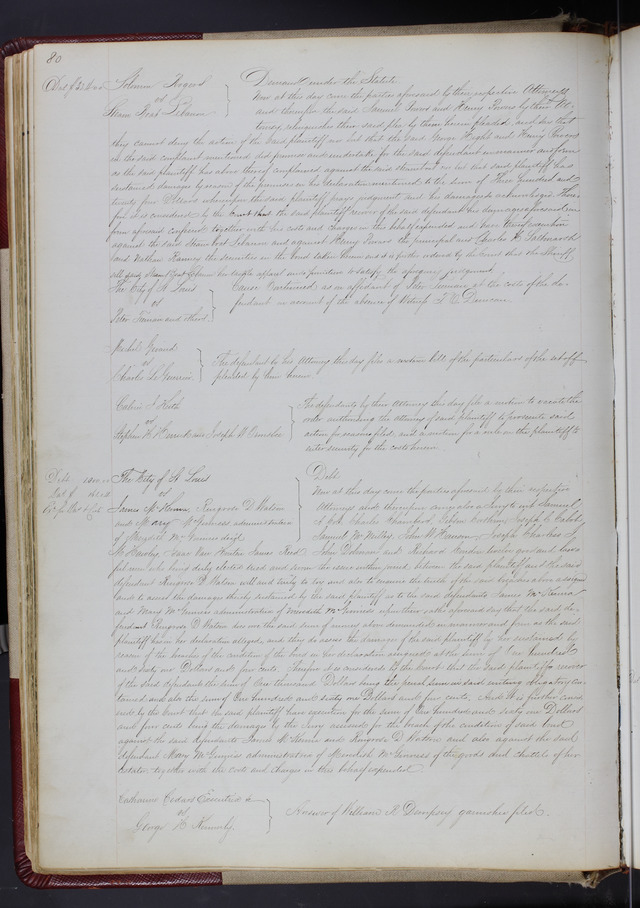 80
Solomon Rogers
vs
Steam Boat Lebanon
Demand under the Statute
Now at this day come the parties aforesaid by their respective Attorneys
and thereupon the said Samuel Powers and Henry Powers by their At-
torney relinquishes their said plea by them herein pleaded and say that
they cannot deny the action of the said plaintiff nor but that the said
in the said complaint mentioned did promise and undertake for the said defendant in manner and form
as the said plaintiff has above thereof complained against the said Steam boat nor but that said plaintiff has
sustained damages by reason of the premises in the declaration mentioned to the sum of Three hundred and
twenty four Dollars wherefore the said plaintiff prays judgment and his damages so acknowledged There-
fore it is considered by the Court that the said plaintiff recover of the said defendant his damages aforesaid in
form aforesaid confessed together with his costs and charges in this behalf expended and have thereof execution
against the said Steam boat Lebanon and against Henry Powers the principal and
and Nathan Ranney the securities in the bond taken herein and it is further ordered by the Court that the Sheriff
sell said Steam Boat Lebanon her tackle apparel and furniture to satisfy the aforesaid judgment
The City of St Louis
vs
Peter Primeau and others
Cause Continued on affidavit of Peter Primeau at the costs of the de-
fendant on account of the absence of Witness T. C. Duncan
Michel Giraud
vs
Charles
The defendant by his Attorney this day files a certain bill of the particulars of the set off
pleaded by him herein
Calvin F Keith
vs
Stephen W and Joseph W Ormsbee
The defendants by their Attorney this day file a motion to vacate the
order authorizing the attorney of said plaintiff to prosecute said
action for reasons filed, and a motion for a rule on the plaintiff to
enter security for the costs herein
Debt
The City of St Louis
vs
James McKenna, Ringrose D Watson
and Mary McGinness administratrix
of Meredith McGinness decd
Debt
Now at this day come the parties aforesaid by their respective
Attorneys and thereupon comes also a Jury to wit Samuel
Charles Chambers, Joseph
Samuel McNulty, John W Hanson, Joseph Charless Jr
Isaac Van Houten James Reed John Dohrman and Richard good and law-
ful men who being duly elected tried and sworn the issue within joined between the said plaintiff and the said
defendant Ringrose D Watson well and truly to try and also to enquire the truth of the said breaches above assigned
and to assess the damages thereby sustained by the said plaintiff as to the said defendants James McKenna
and Mary McGinness administratrix of Meredith McGinness upon their oaths aforesaid say that the said de-
fendant Ringrose D Watson does owe the said sum of money above demanded in manner and form as the said
plaintiff has in her declaration alleged, and they do assess the damages of the said plaintiff by her sustained by
reason of the breaches of the condition of the bond in her declaration assigned at the sum of One hundred
and sixty one Dollars and five cents, Therefore it is considered by the Court that the said plaintiff recover
of the said defendants the sum of One thousand Dollars being the penal sum in said writing obligatory con-
tained and also the sum of One hundred and sixty one Dollars and five cents, And it is further consid-
ered by the Court that the said plaintiff have execution for the sum of One hundred and sixty one Dollars
and five cents being the damages by the Jury assessed for the breach of the condition of said bond
against the said defendants James McKenna and Ringrose D Watson and also against the said
defendant Mary McGinness administratrix of Meredith McGinness of the goods and chattels of her
estate together with the costs and charges in this behalf expended
Catharine Cedars Executrix &
vs
George H Kennerly
Answer of William R Dempsey garnishee filed.